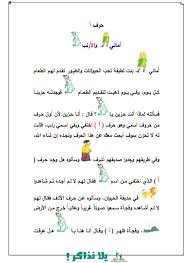 حرف أ
أماني والأرنب
أماني بنت لطيفة تحب الحيوانات والطيور تقدم لهم الطعام
كل يوم، وفي يوم ذهبت لتقديم الطعام فوجدته حزيناً
فسألته لماذا أنت حزين يا ؟ قال: أنا حزين لأن أول حرف
من حروف اسمي وهو حرف ( أ ) قد اختفى وبقى اسمي رنب، قالت
له لا تحزن سوف أبحث معك عن هذا الحرف ونجده إن شاء الله،
وفي طريقهم وجدوا صديقهم أشرف وسألوه هل وجد حرف
( أ ) الذي اختفى من اسم فقال لهم لا لم أجده ثم شاهدوا
في حديقة الحيوان، وسألوه عن حرف الألف فقال لهم
لا لم أشاهده وفجأة سمعوا صوتاً غريباً وعالياً خرج من الأرض
وهو حرف ( أ ) وقال أنا هنا يا
يلا نذاكر !